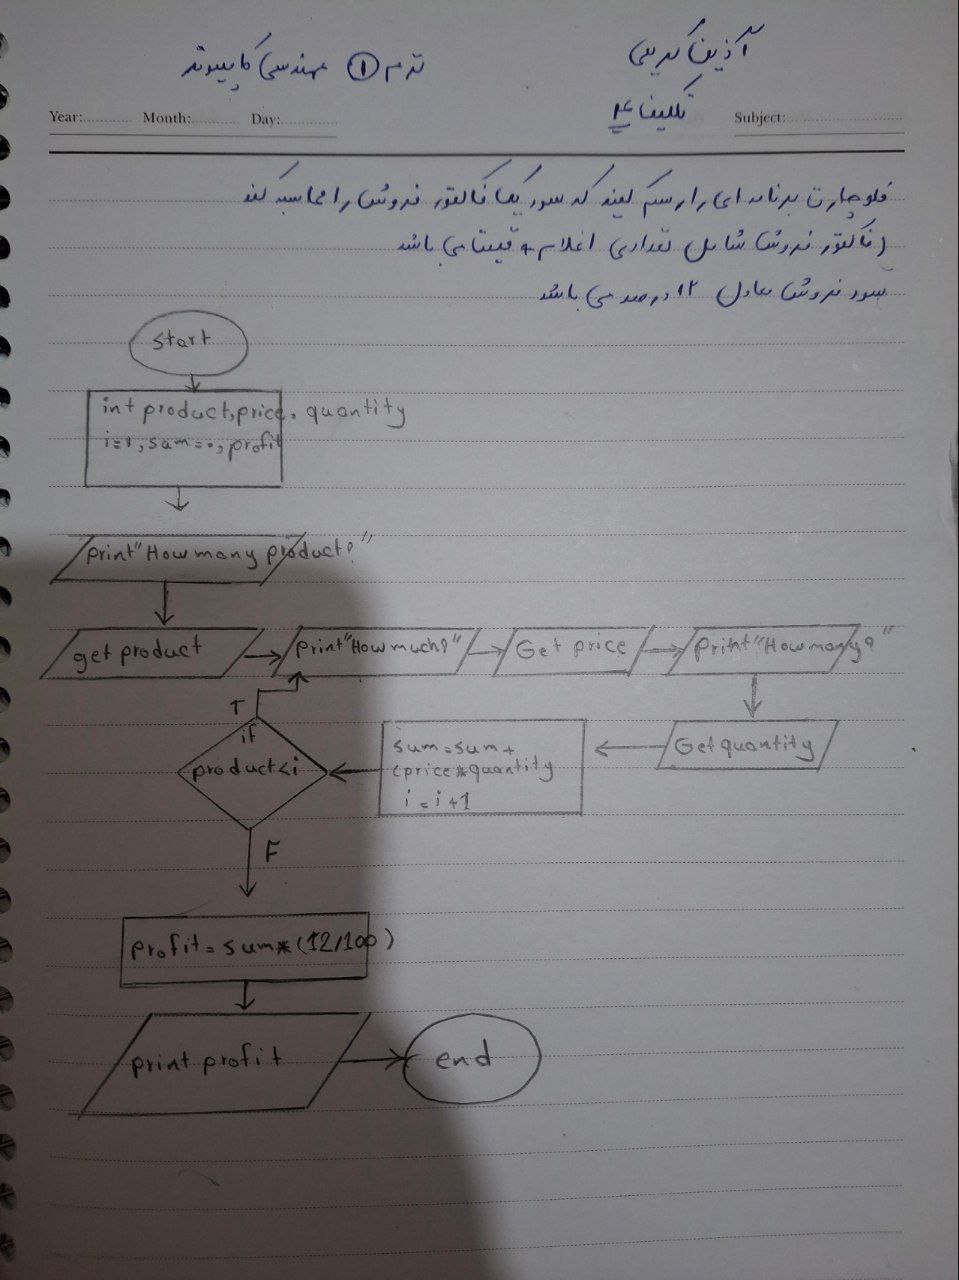 آذین کریمی
ترم ① مهندسی کامپیوتر
تکلیف ۴
Year: Month: Day: Subject:
فلوچارت برنامه ای را رسم کنید که سود یک فاکتور فروش را محاسبه کند
(فاکتور فروش شامل تعدادی اقلام و قیمت می باشد
سود فروش معادل ۱۲ درصد می باشد
start
int product, price, quantity
i=1, sum=0, profit
print "How many product?"
get product
print "How much?"
Get price
print "How many?"
Get quantity
sum=sum+
(price*quantity
i=i+1
T
if
product<i
F
profit=sum*(12/100)
print profit
end